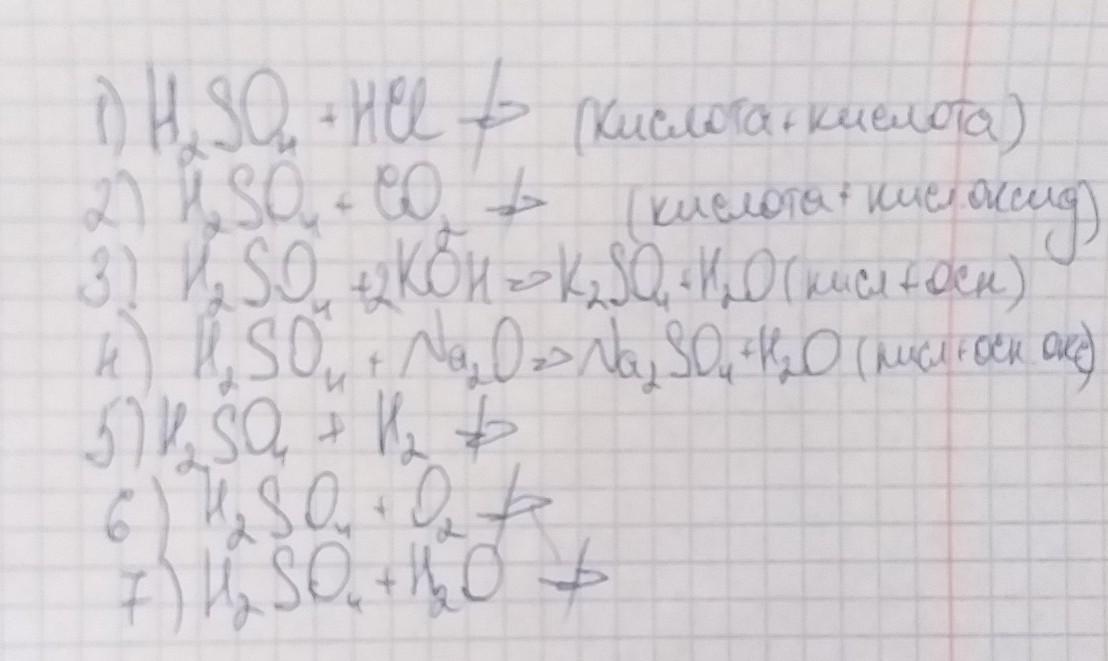 1) H₂SO₄ + HCl ↛ (кислота + кислота)
2) H₂SO₄ + CO₂ ↛ (кислота + кисл оксид)
3) H₂SO₄ + 2KOH => K₂SO₄ + H₂O (кисл + осн)
4) H₂SO₄ + Na₂O => Na₂SO₄ + H₂O (кисл + осн окс)
5) H₂SO₄ + H₂ ↛
6) H₂SO₄ + O₂ ↛
7) H₂SO₄ + H₂O ↛